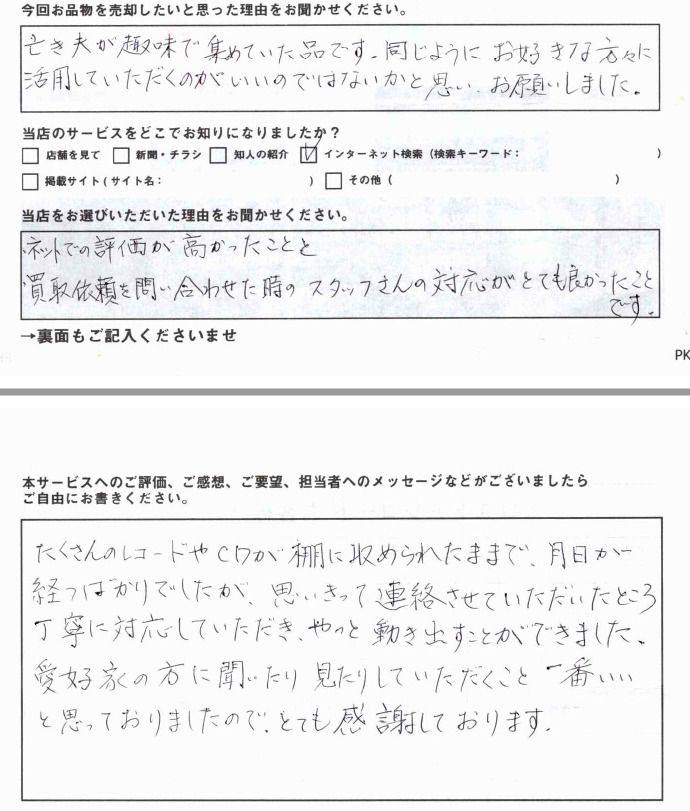 今回お品物を売却したいと思った理由をお聞かせください。
亡き夫が趣味で集めていた品です。同じように お好きな方々に
活用していただくのがいいのではないかと思い、お願いしました。
当店のサービスをどこでお知りになりましたか？
店舗を見て 新聞・チラシ 知人の紹介 インターネット検索（検索キーワード： ）
掲載サイト（サイト名： ） その他（ ）
当店をお選びいただいた理由をお聞かせください。
ネットでの評価が高かったことと
買取依頼を問い合わせた時の スタッフさんの対応がとても良かったこと
です。
→裏面もご記入くださいませ
PK
本サービスへのご評価、ご感想、ご要望、担当者へのメッセージなどがございましたら
ご自由にお書きください。
たくさんのレコードやCDが棚に収められたままで、月日が
経つばかりでしたが、思いきって連絡させていただいたところ
丁寧に対応していただき、やっと動き出すことができました。
愛好家の方に聞いたり見たりしていただくこと 一番いい
と思っておりましたので、とても感謝しております。